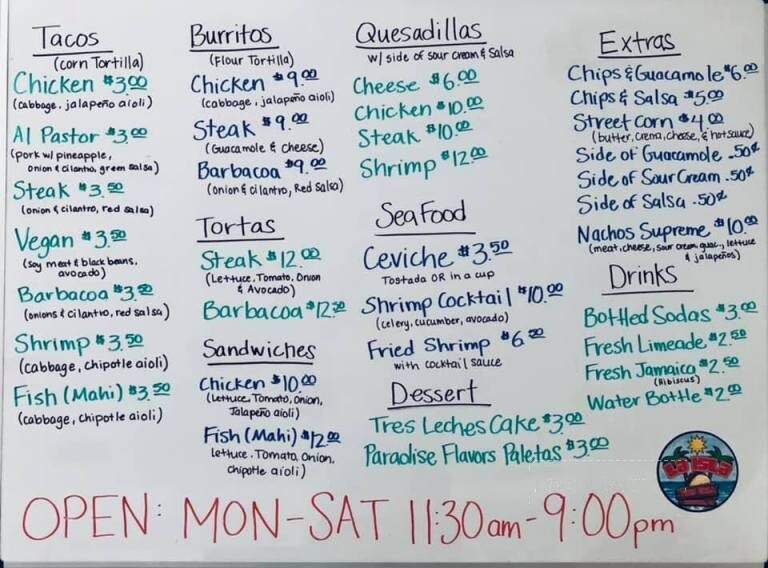 Tacos
(corn Tortilla)
Chicken $3.00
(cabbage, jalapeño aioli)
Al Pastor $3.00
(pork w/ pineapple,
onion & cilantro, green salsa)
Steak $3.50
(onion & cilantro, red salsa)
Vegan $3.50
(soy meat & black beans,
avocado)
Barbacoa $3.50
(onions & cilantro, red salsa)
Shrimp $3.50
(cabbage, chipotle aioli)
Fish (Mahi) $3.50
(cabbage, chipotle aioli)
Burritos
(Flour Tortilla)
Chicken $9.00
(cabbage, jalapeño aioli)
Steak $9.00
(Guacamole & cheese)
Barbacoa $9.00
(onion & cilantro, Red Salsa)
Tortas
Steak $12.00
(Lettuce, Tomato, Onion
& Avocado)
Barbacoa $12.50
Sandwiches
Chicken $10.00
(Lettuce, Tomato, Onion,
Jalapeño aioli)
Fish (Mahi) $12.00
lettuce, Tomato, Onion,
chipotle aioli)
Quesadillas
w/ side of sour cream & Salsa
Cheese $6.00
Chicken $10.00
Steak $10.00
Shrimp $12.00
SeaFood
Ceviche $3.50
Tostada OR in a cup
Shrimp Cocktail $10.00
(celery, cucumber, avocado)
Fried Shrimp $6.50
with cocktail sauce
Dessert
Tres Leches Cake $3.00
Paradise Flavors Paletas $3.00
Extras
Chips & Guacamole $6.00
Chips & Salsa $5.00
Street Corn $4.00
(butter, crema, cheese, & hot sauce)
Side of Guacamole .50¢
Side of Sour Cream .50¢
Side of Salsa .50¢
Nachos Supreme $10.00
(meat, cheese, sour cream, guac., lettuce
& jalapeños)
Drinks
Bottled Sodas $3.00
Fresh Limeade $2.50
Fresh Jamaica $2.50
(Hibiscus)
Water Bottle $2.00
LA ISLA
OPEN: MON-SAT 11:30am-9:00pm